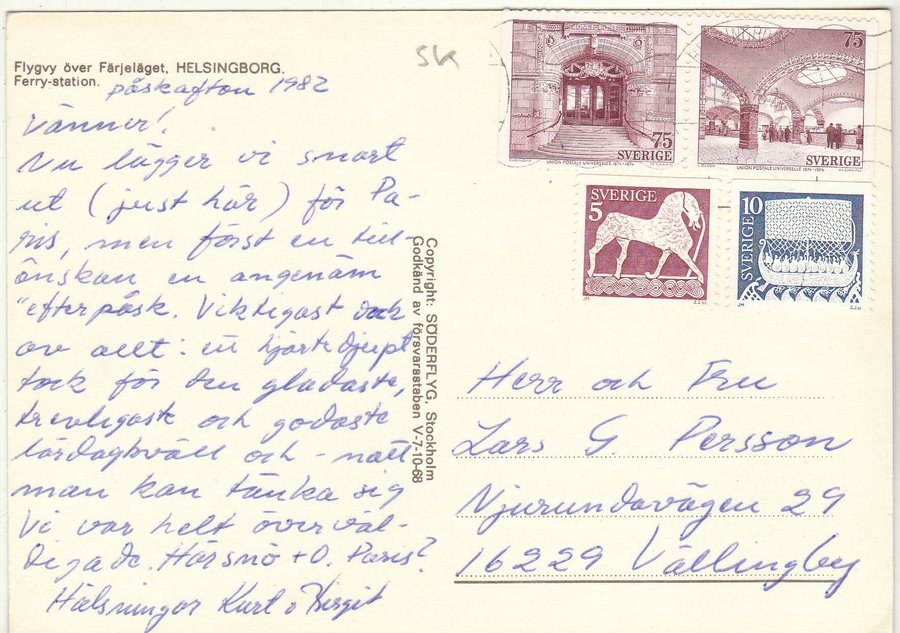 Flygvy över Färjeläget, HELSINGBORG.
Ferry-station.
påskafton 1982
Vänner!
Nu lägger vi snart
ut (just här) för Pa-
ris, men först en till-
önskan en angenäm
"efterpåsk. Viktigast dock
av allt: ett hjärtedjupt
tack för den gladaste,
trevligaste och godaste
lördagkväll och - natt
man kan tänka sig
Vi var helt överväl-
digade.
Hälsningar Kurt o Birgit
Copyright: SÖDERFLYG, Stockholm
Godkänd av försvarsstaben V-7-10-68
SK
75
SVERIGE
UNION POSTALE UNIVERSELLE 1874-1974
75
SVERIGE
UNION POSTALE UNIVERSELLE 1874-1974
SVERIGE
5
10
SVERIGE
Herr och Fru
Lars G. Persson
Njurundavägen 29
16229 Vällingby